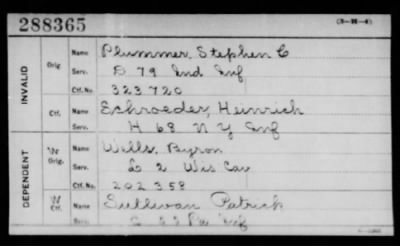 288365
(3-M-4)
INVALID
Orig
Name Plummer, Stephen C
Serv. D 79 Ind Inf
Ctf. No. 323720
Ctf.
Name Schroeder, Heinrich
Serv. H 68 N Y Inf
DEPENDENT
W Orig.
Name Wells, Byron
Serv. L 2 Wis Cav
Ctf. No. 202358
W Ctf.
Name Sullivan Patrick
Serv. Pa Inf